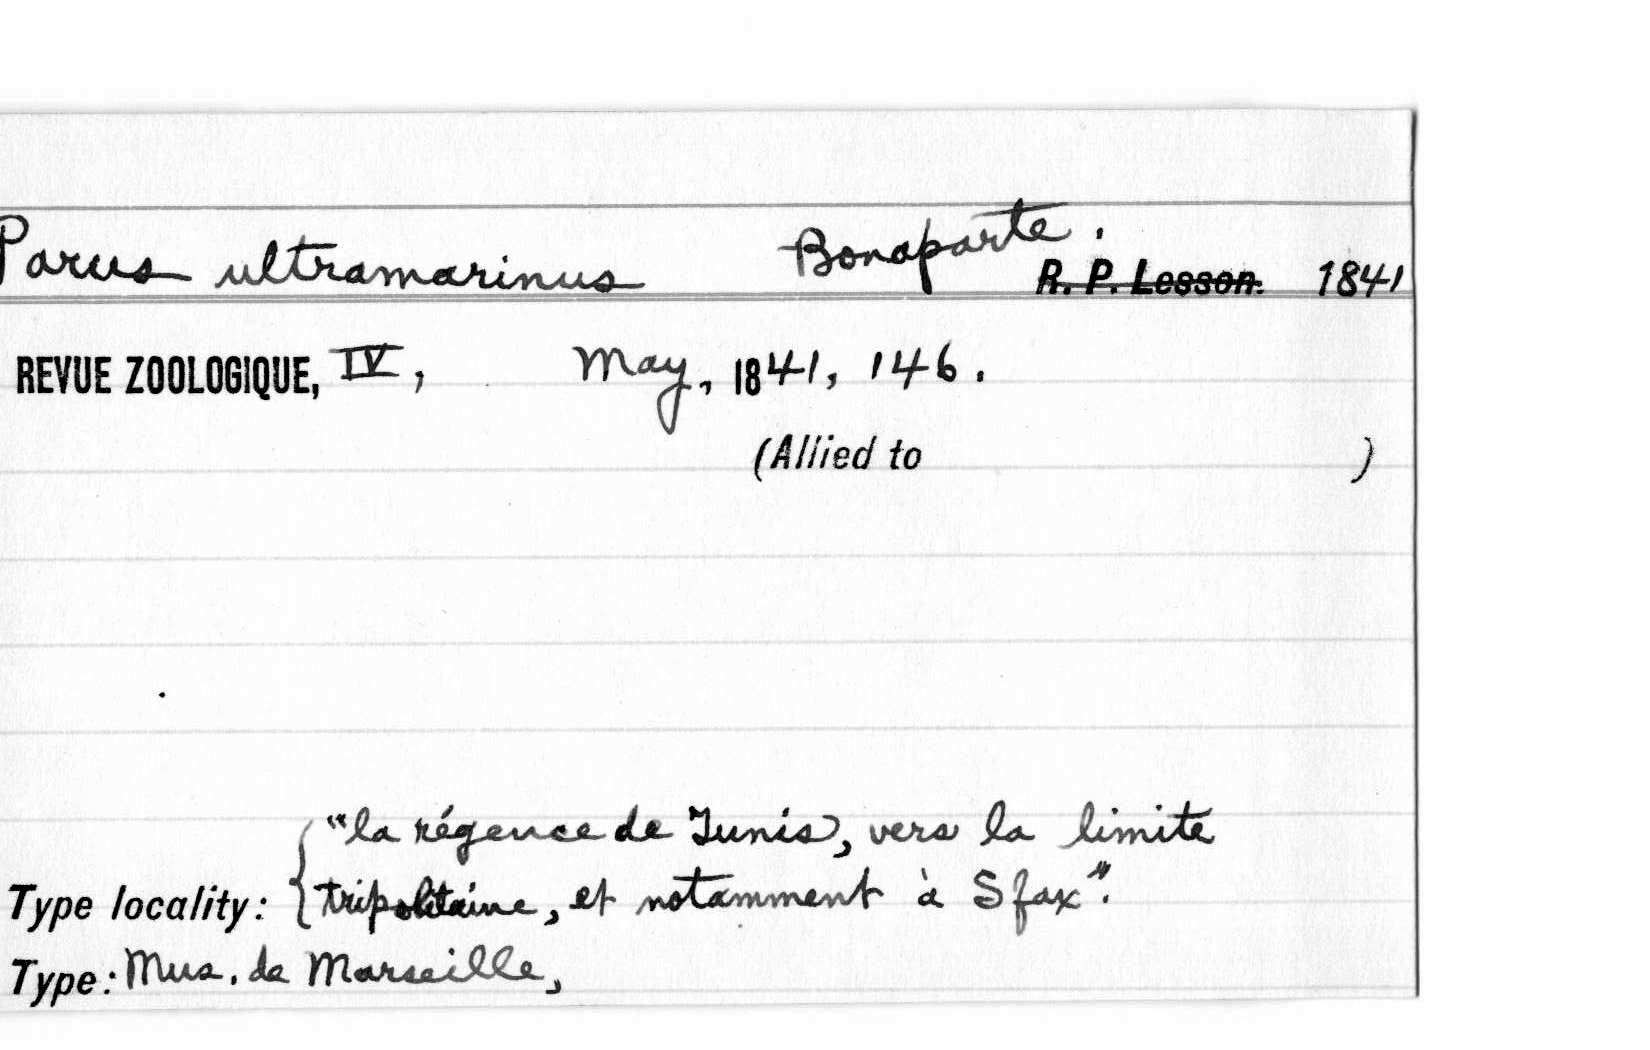 Parus ultramarinus Bonaparte.
R. P. Lesson. 1841
REVUE ZOOLOGIQUE, IV, May, 1841, 146.
(Allied to )
"la régence de Tunis, vers la limite
Type locality: { tripolitaine, et notamment à Sfax".
Type: Mus. de Marseille,